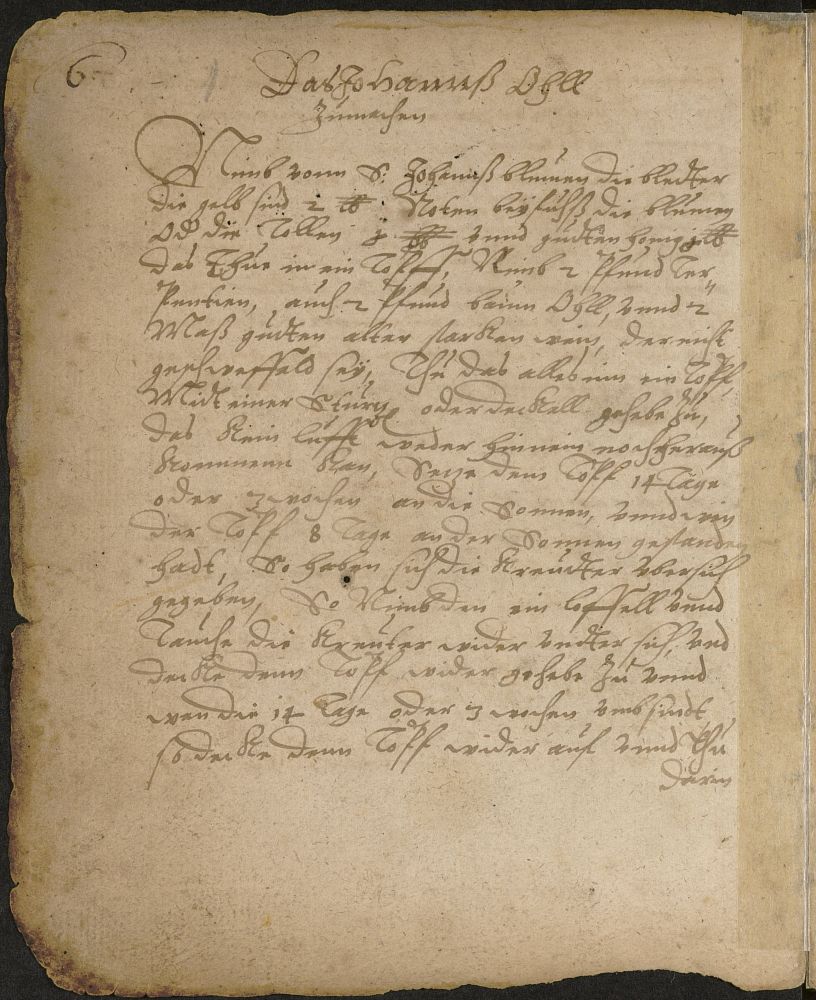 6
Das Johanneß Ohll
Zumachen
Nimb vonn S: Johaneß blumen die bledter
die gelb sind 2 ℔ Roten beyfußß die blumen
Od die Tollen ℔ vnnd gudten honig ℔
das Thue in ein Topff, Nimb 2 Pfund Ter
Pentien, auch 2 Pfund baum Ohll, vnnd 2
Maß gudten alten starcken wein, der nicht
geschweffeld sey, Thu das alles inn ein Topff,
Midt einer Sturtz oder deckell gehebe zu,
das Kein lufft weder hinnein noch herauß
Kommenn Kan, Setze denn Topff 14 Tage
oder 3 wochen an die Sonnen, vnnd wen
der Topff 8 Tage an der Sonnen gestanden
hadt, So haben sich die Kreudter vbersich
gegeben, So Nimb den ein loffell vnnd
Tauche die Kreuter wider vndter sich, vnd
decke denn Topff wider gehebe zu vnnd
wen die 14 Tage oder 3 wochen vmb sindt
so decke denn Topff wider auf vnnd Thu
darin